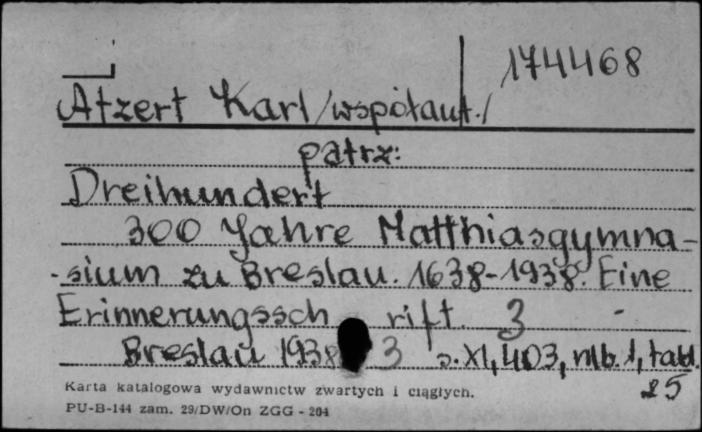 174468
Atzert Karl /współaut./
patrz:
Dreihundert
300 Jahre Matthiasgymna-
-sium zu Breslau. 1638-1938. Eine
Erinnerungssch rift. 3
Breslau 1938 3 s. XI, 403, nlb. 1, tabl.
25
Karta katalogowa wydawnictw zwartych i ciągłych.
PU-B-144 zam. 29/DW/On ZGG - 204